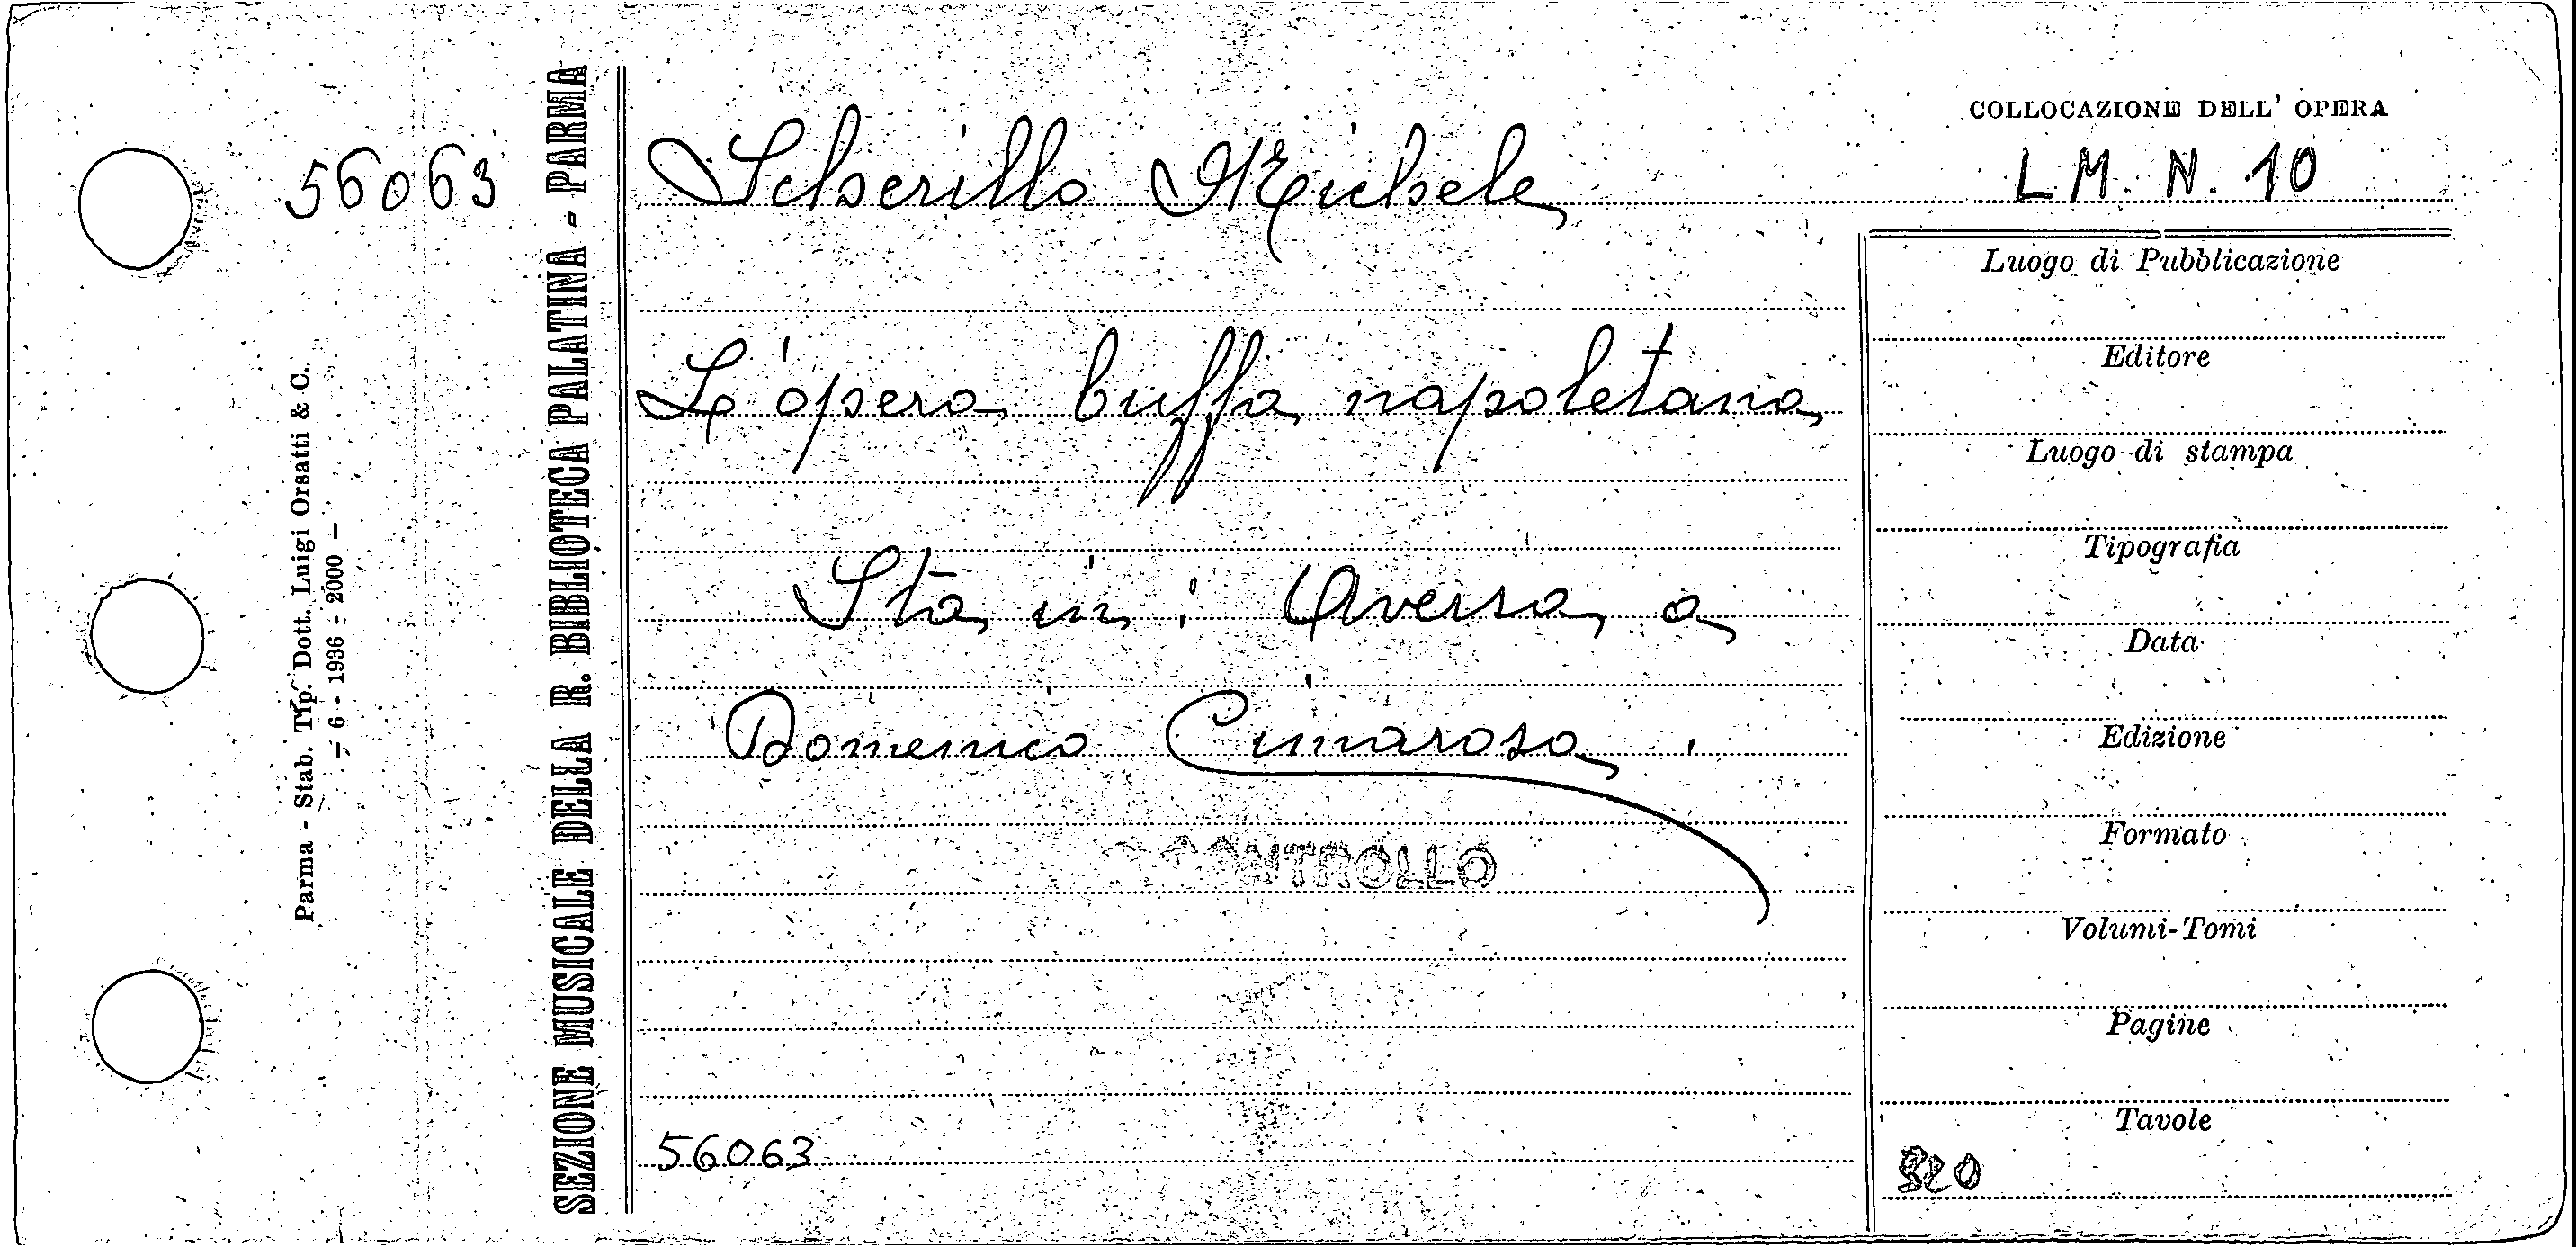 COLLOCAZIONE DELL' OPERA
56063
Scherillo Michele
L M. N. 10
L'opera buffa napoletana
Sta in: Aversa a
Domenico Cimarosa.
CONTROLLO
56063
Luogo di Pubblicazione
Editore
Luogo di stampa
Tipografia
Data
Edizione
Formato
Volumi-Tomi
Pagine
Tavole
820
SEZIONE MUSICALE DELLA R. BIBLIOTECA PALATINA - PARMA
Parma - Stab. Tip. Dott. Luigi Orsatti & C.
- 6 - 1936 - 2000 -